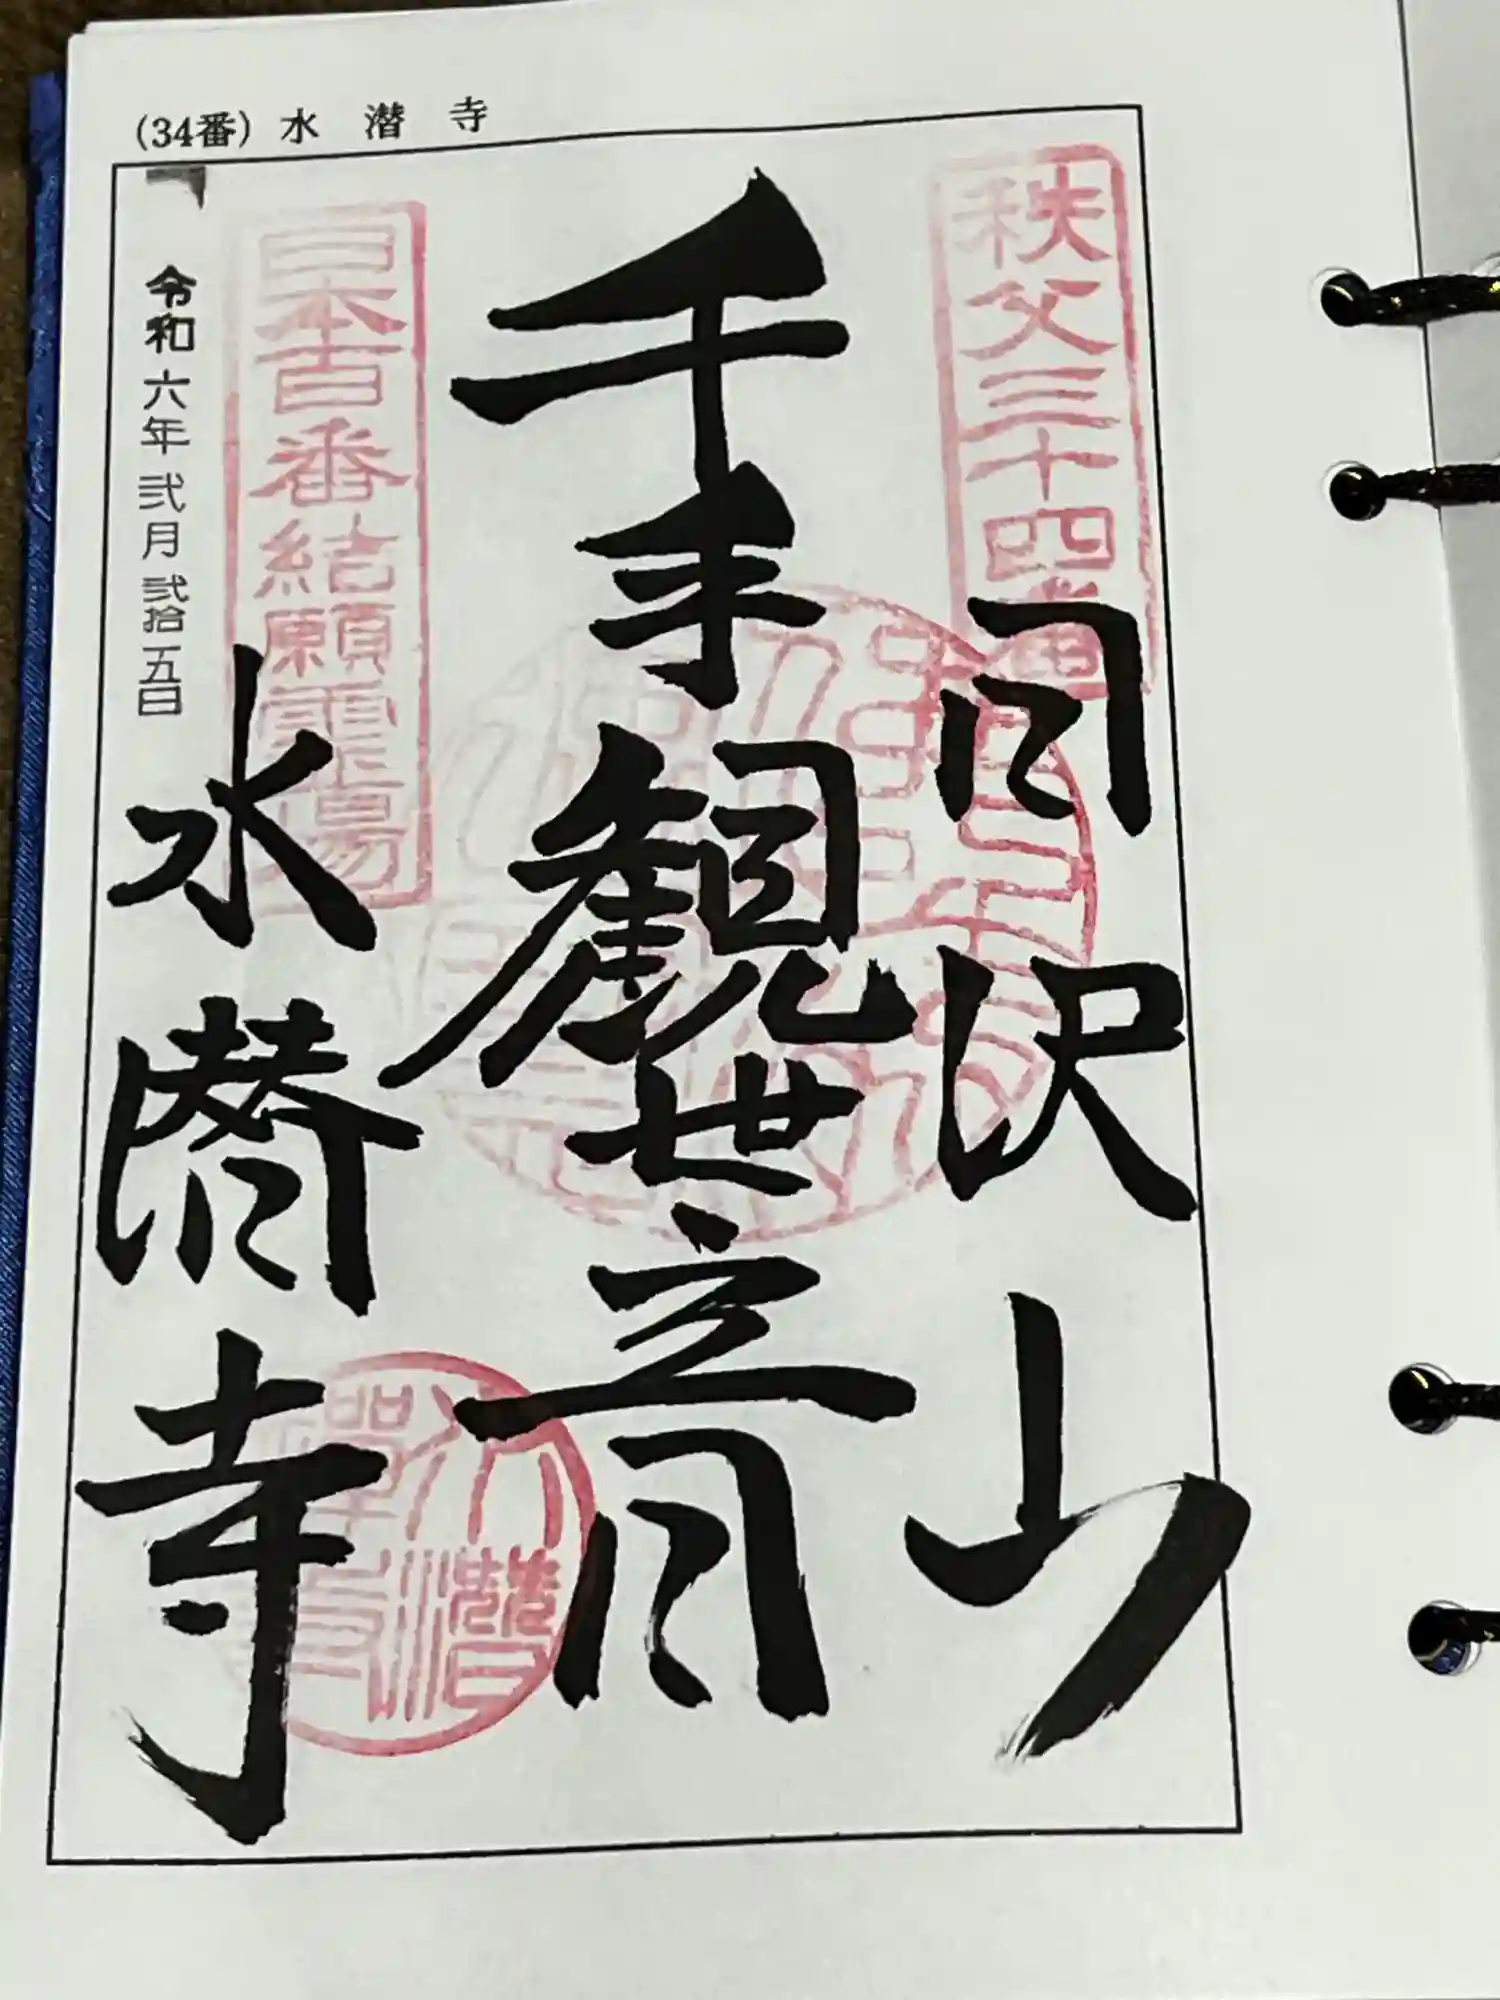 (34番) 水潜寺
秩父三十四番
日沢山
千手観世音
日本百番結願霊場
水潜寺
水潜禪寺
令和六年弐月弐拾五日